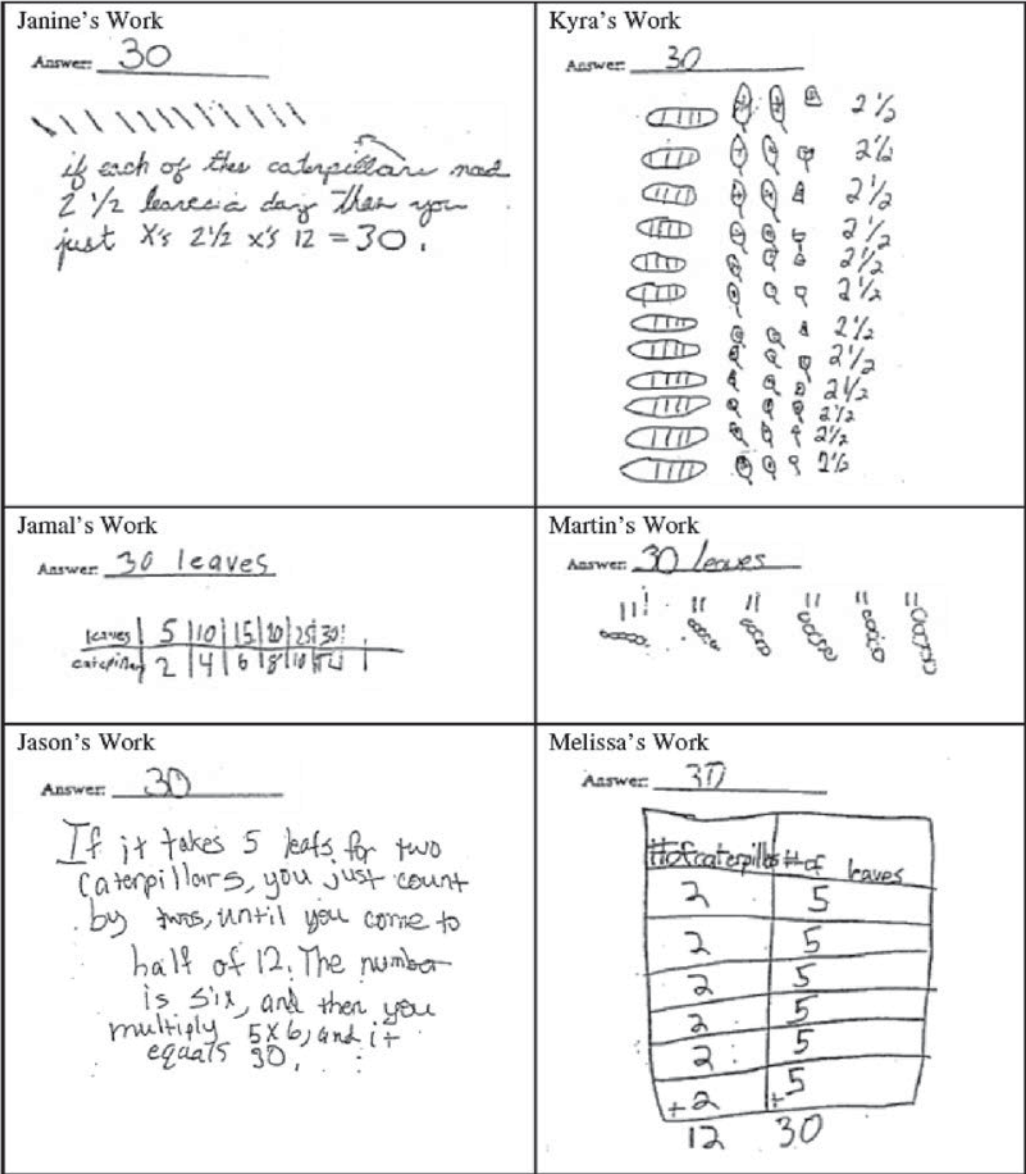 Janine's Work
Answer: 30
if each of the caterpillars need
2 1/2 leaves a day then you
just X's 2 1/2 x's 12 = 30.
Kyra's Work
Answer: 30
2 1/2
2 1/2
2 1/2
2 1/2
2 1/2
2 1/2
2 1/2
2 1/2
2 1/2
2 1/2
2 1/2
2 1/2
Jamal's Work
Answer: 30 leaves
leaves 5 10 15 20 25 30
2 4 6 8 10 12
Martin's Work
Answer: 30 leaves
Jason's Work
Answer: 30
If it takes 5 leafs for two
caterpillars, you just count
by twos, until you come to
half of 12. The number
is six, and then you
multiply 5x6, and it
equals 30.
Melissa's Work
Answer: 30
# of caterpillars # of leaves
2 5
2 5
2 5
2 5
2 5
+2 +5
12 30